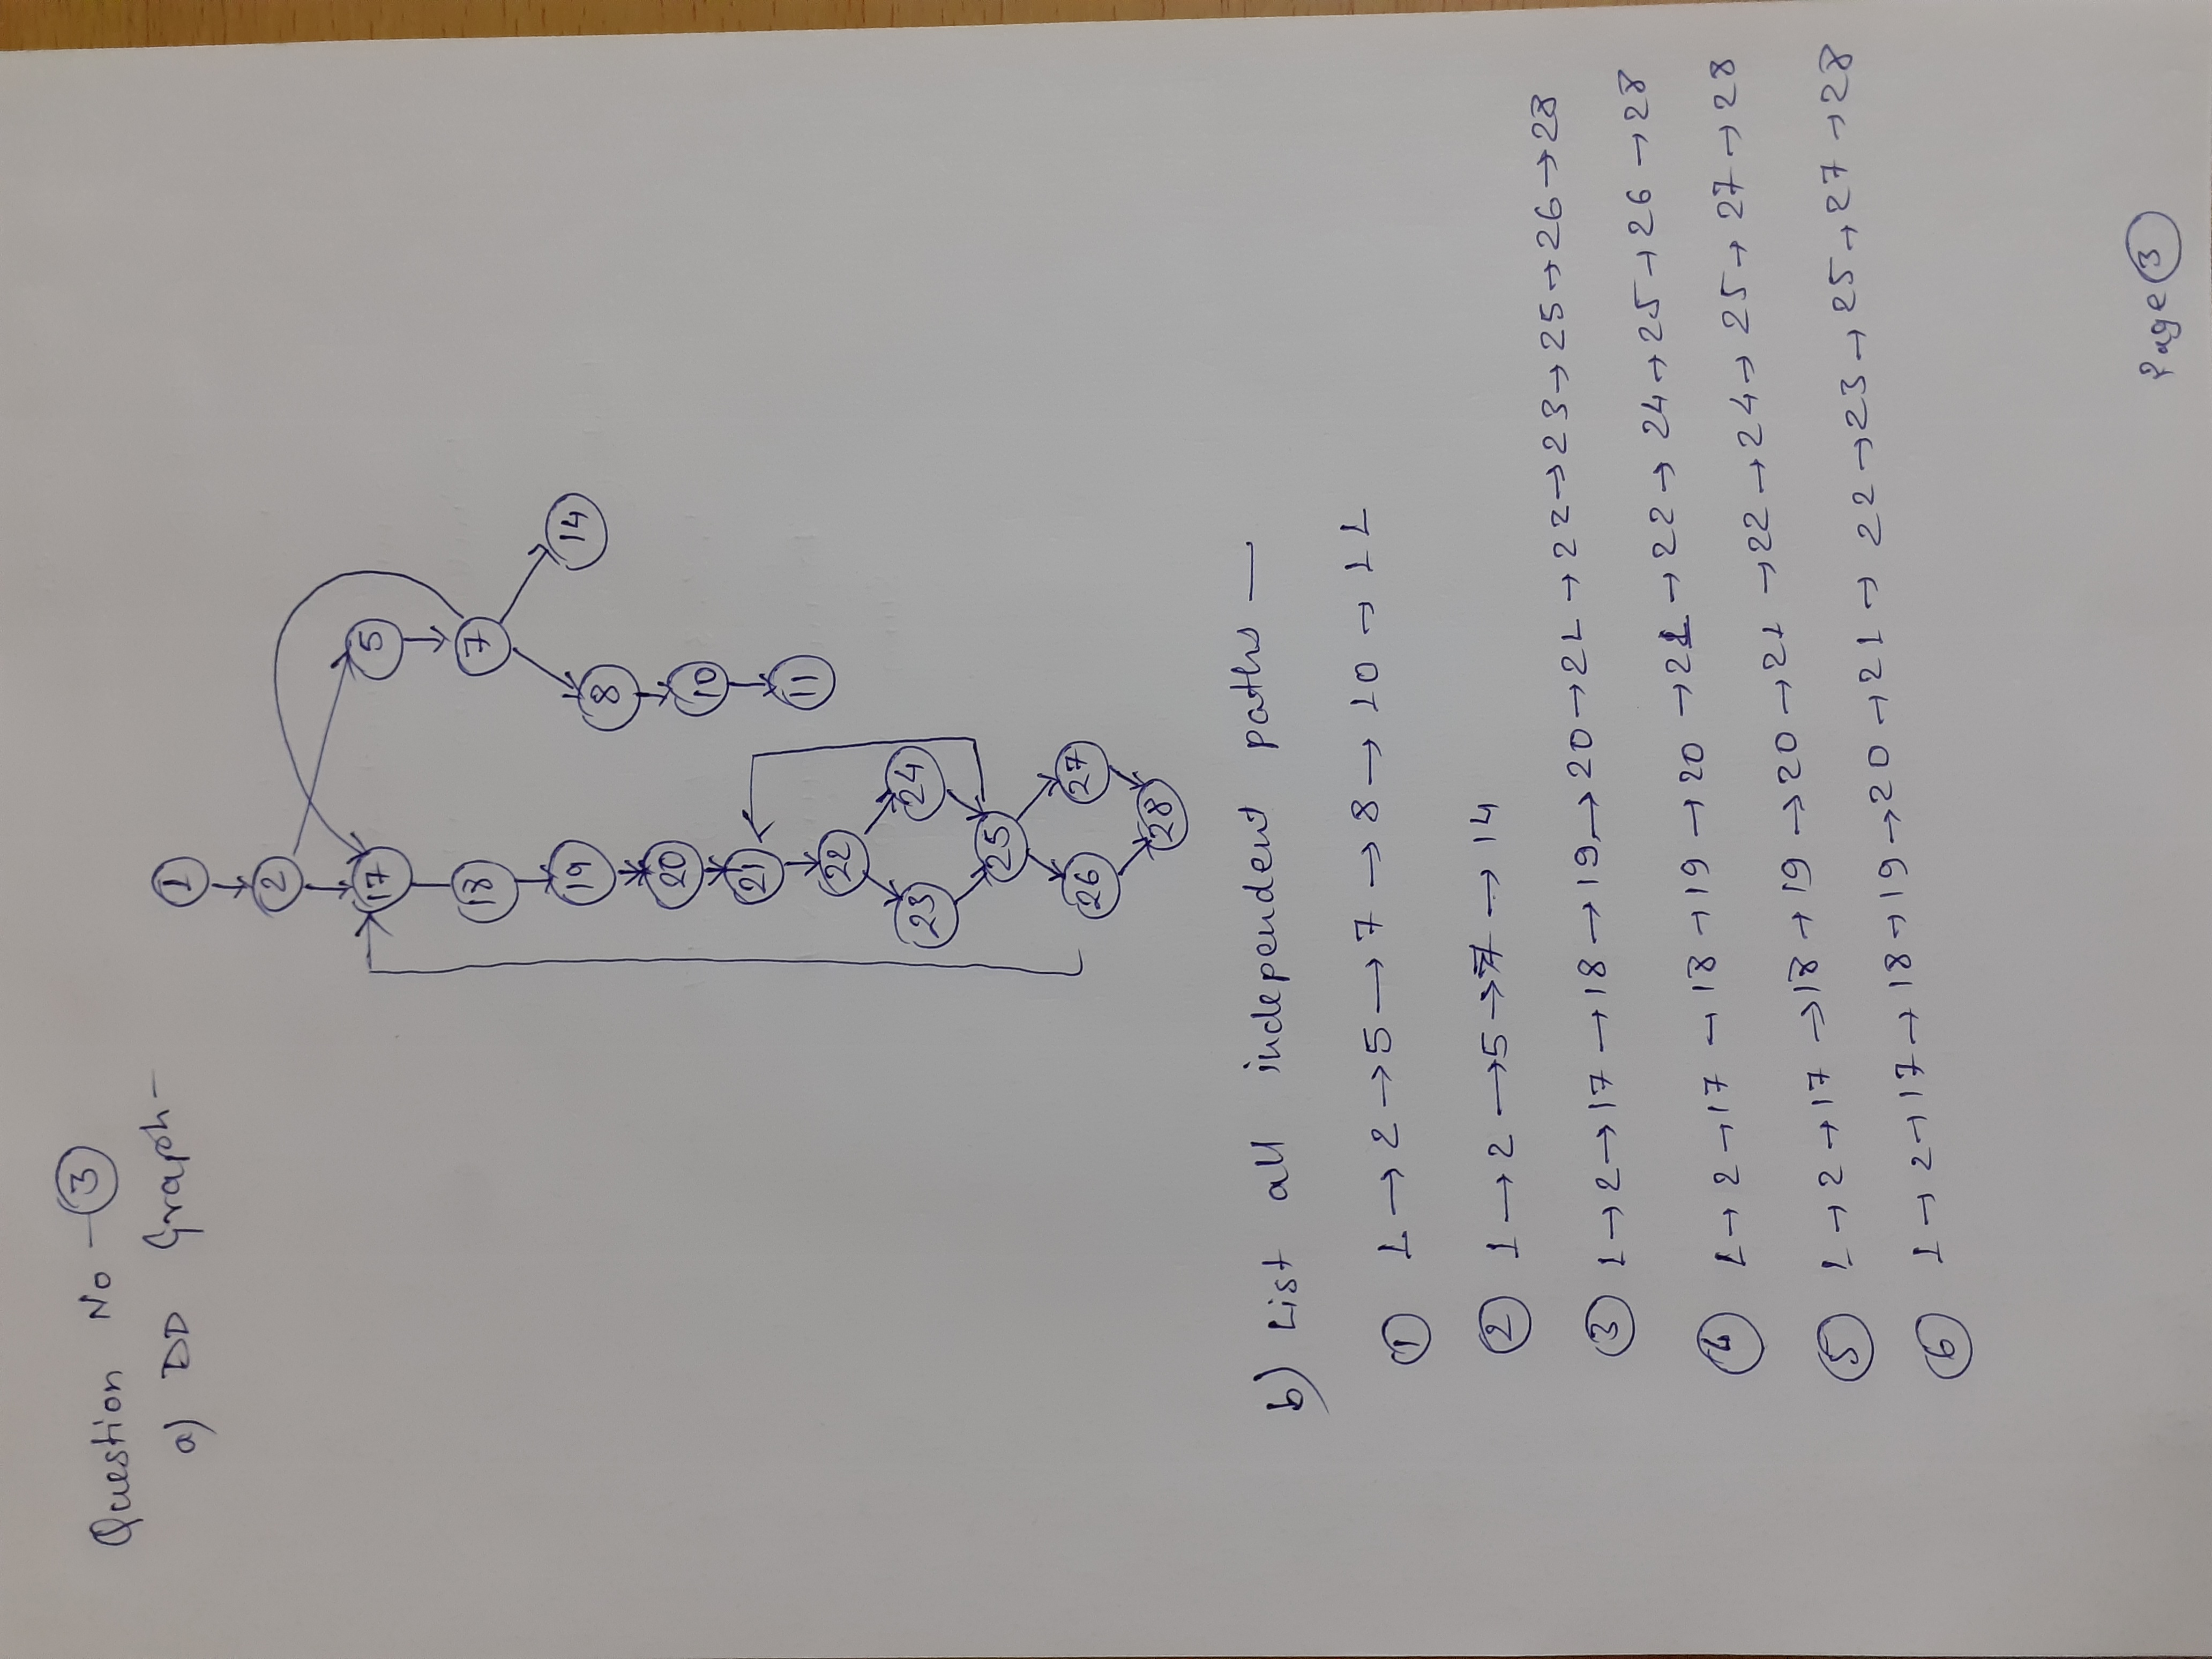 Question No - 3
a) DD Graph -
1
2
17
5
18
7
19
14
8
20
10
21
11
22
23
24
25
26
27
28
b) List all independent paths —
1 1 → 2 → 5 → 7 → 8 → 10 → 11
2 1 → 2 → 5 → 7 → 14
3 1 → 2 → 17 → 18 → 19 → 20 → 21 → 22 → 23 → 25 → 26 → 28
4 1 → 2 → 17 → 18 → 19 → 20 → 21 → 22 → 24 → 25 → 26 → 28
5 1 → 2 → 17 → 18 → 19 → 20 → 21 → 22 → 24 → 25 → 27 → 28
6 1 → 2 → 17 → 18 → 19 → 20 → 21 → 22 → 23 → 25 → 27 → 28
Page 3